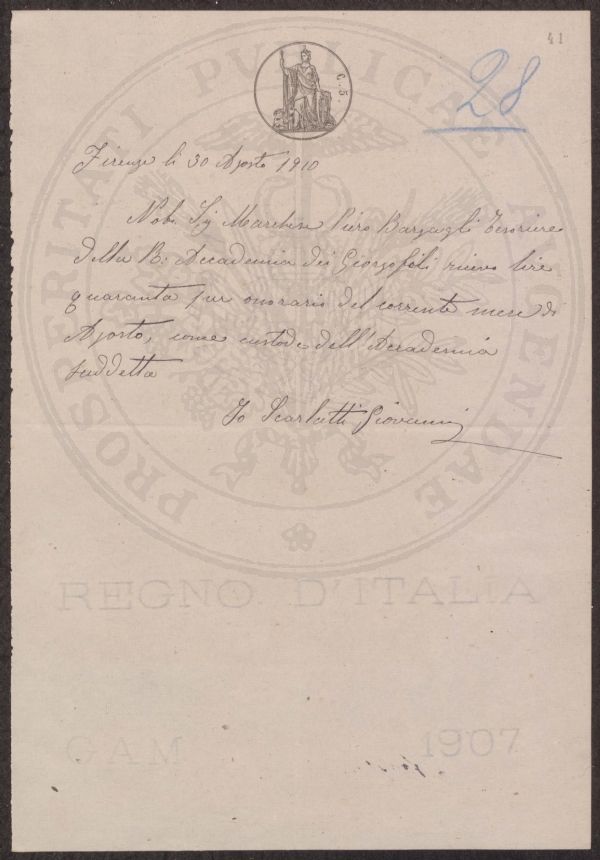 41
28
C. 5.
Firenze li 30 Agosto 1910
Nob. Sig Marchese Piero Bargagli Tesoriere
della R. Accademia dei Giorgofili ricevo lire
quaranta per onorario del corrente mese di
Agosto, come custode dell'Accademia
suddetta
Io Scarlatti Giovanni
PROSPERITATI PUBLICAE AUGENDAE
REGNO D'ITALIA
GAM 1907